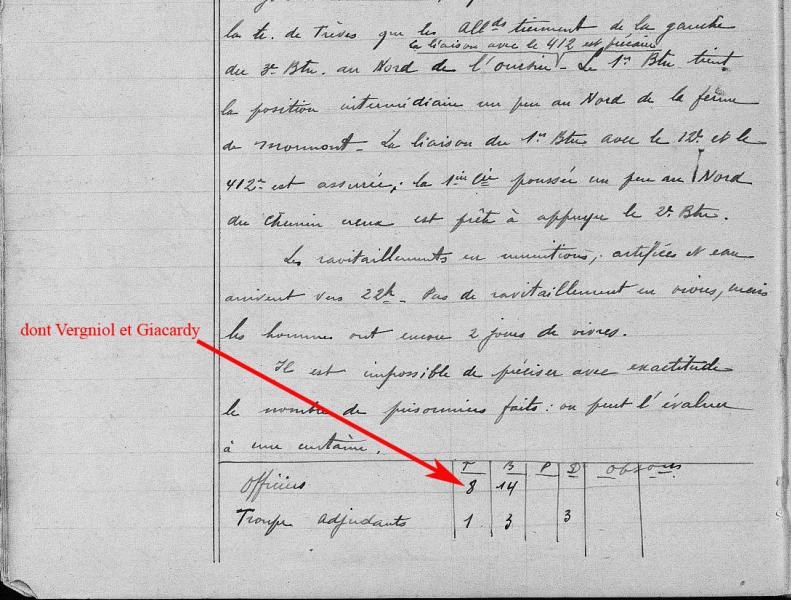 la tr. de Trèves que les Allds tiennent de la gauche
la liaison avec le 412 est précaire
du 3e Btn. au Nord de l'ourcin - Le 1er Btn tient
la position intermédiaire un peu au Nord de la ferme
de Mormont - La liaison du 1er Btn avec le 12e et le
412e est assurée; la 1ière Cie poussée un peu au Nord
du Chemin creux est prête à appuyer le 2e Btn.
Les ravitaillements en munitions, artifices et eau
arrivent vers 22h - Pas de ravitaillement en vivres, mais
dont Vergniol et Giacardy
les hommes ont encore 2 jours de vivres.
Il est impossible de préciser avec exactitude
le nombre de prisonniers faits: on peut l'évaluer
à une centaine.
T B P D Obsons
Officiers 8 14
Troupe Adjudants 1 3 3